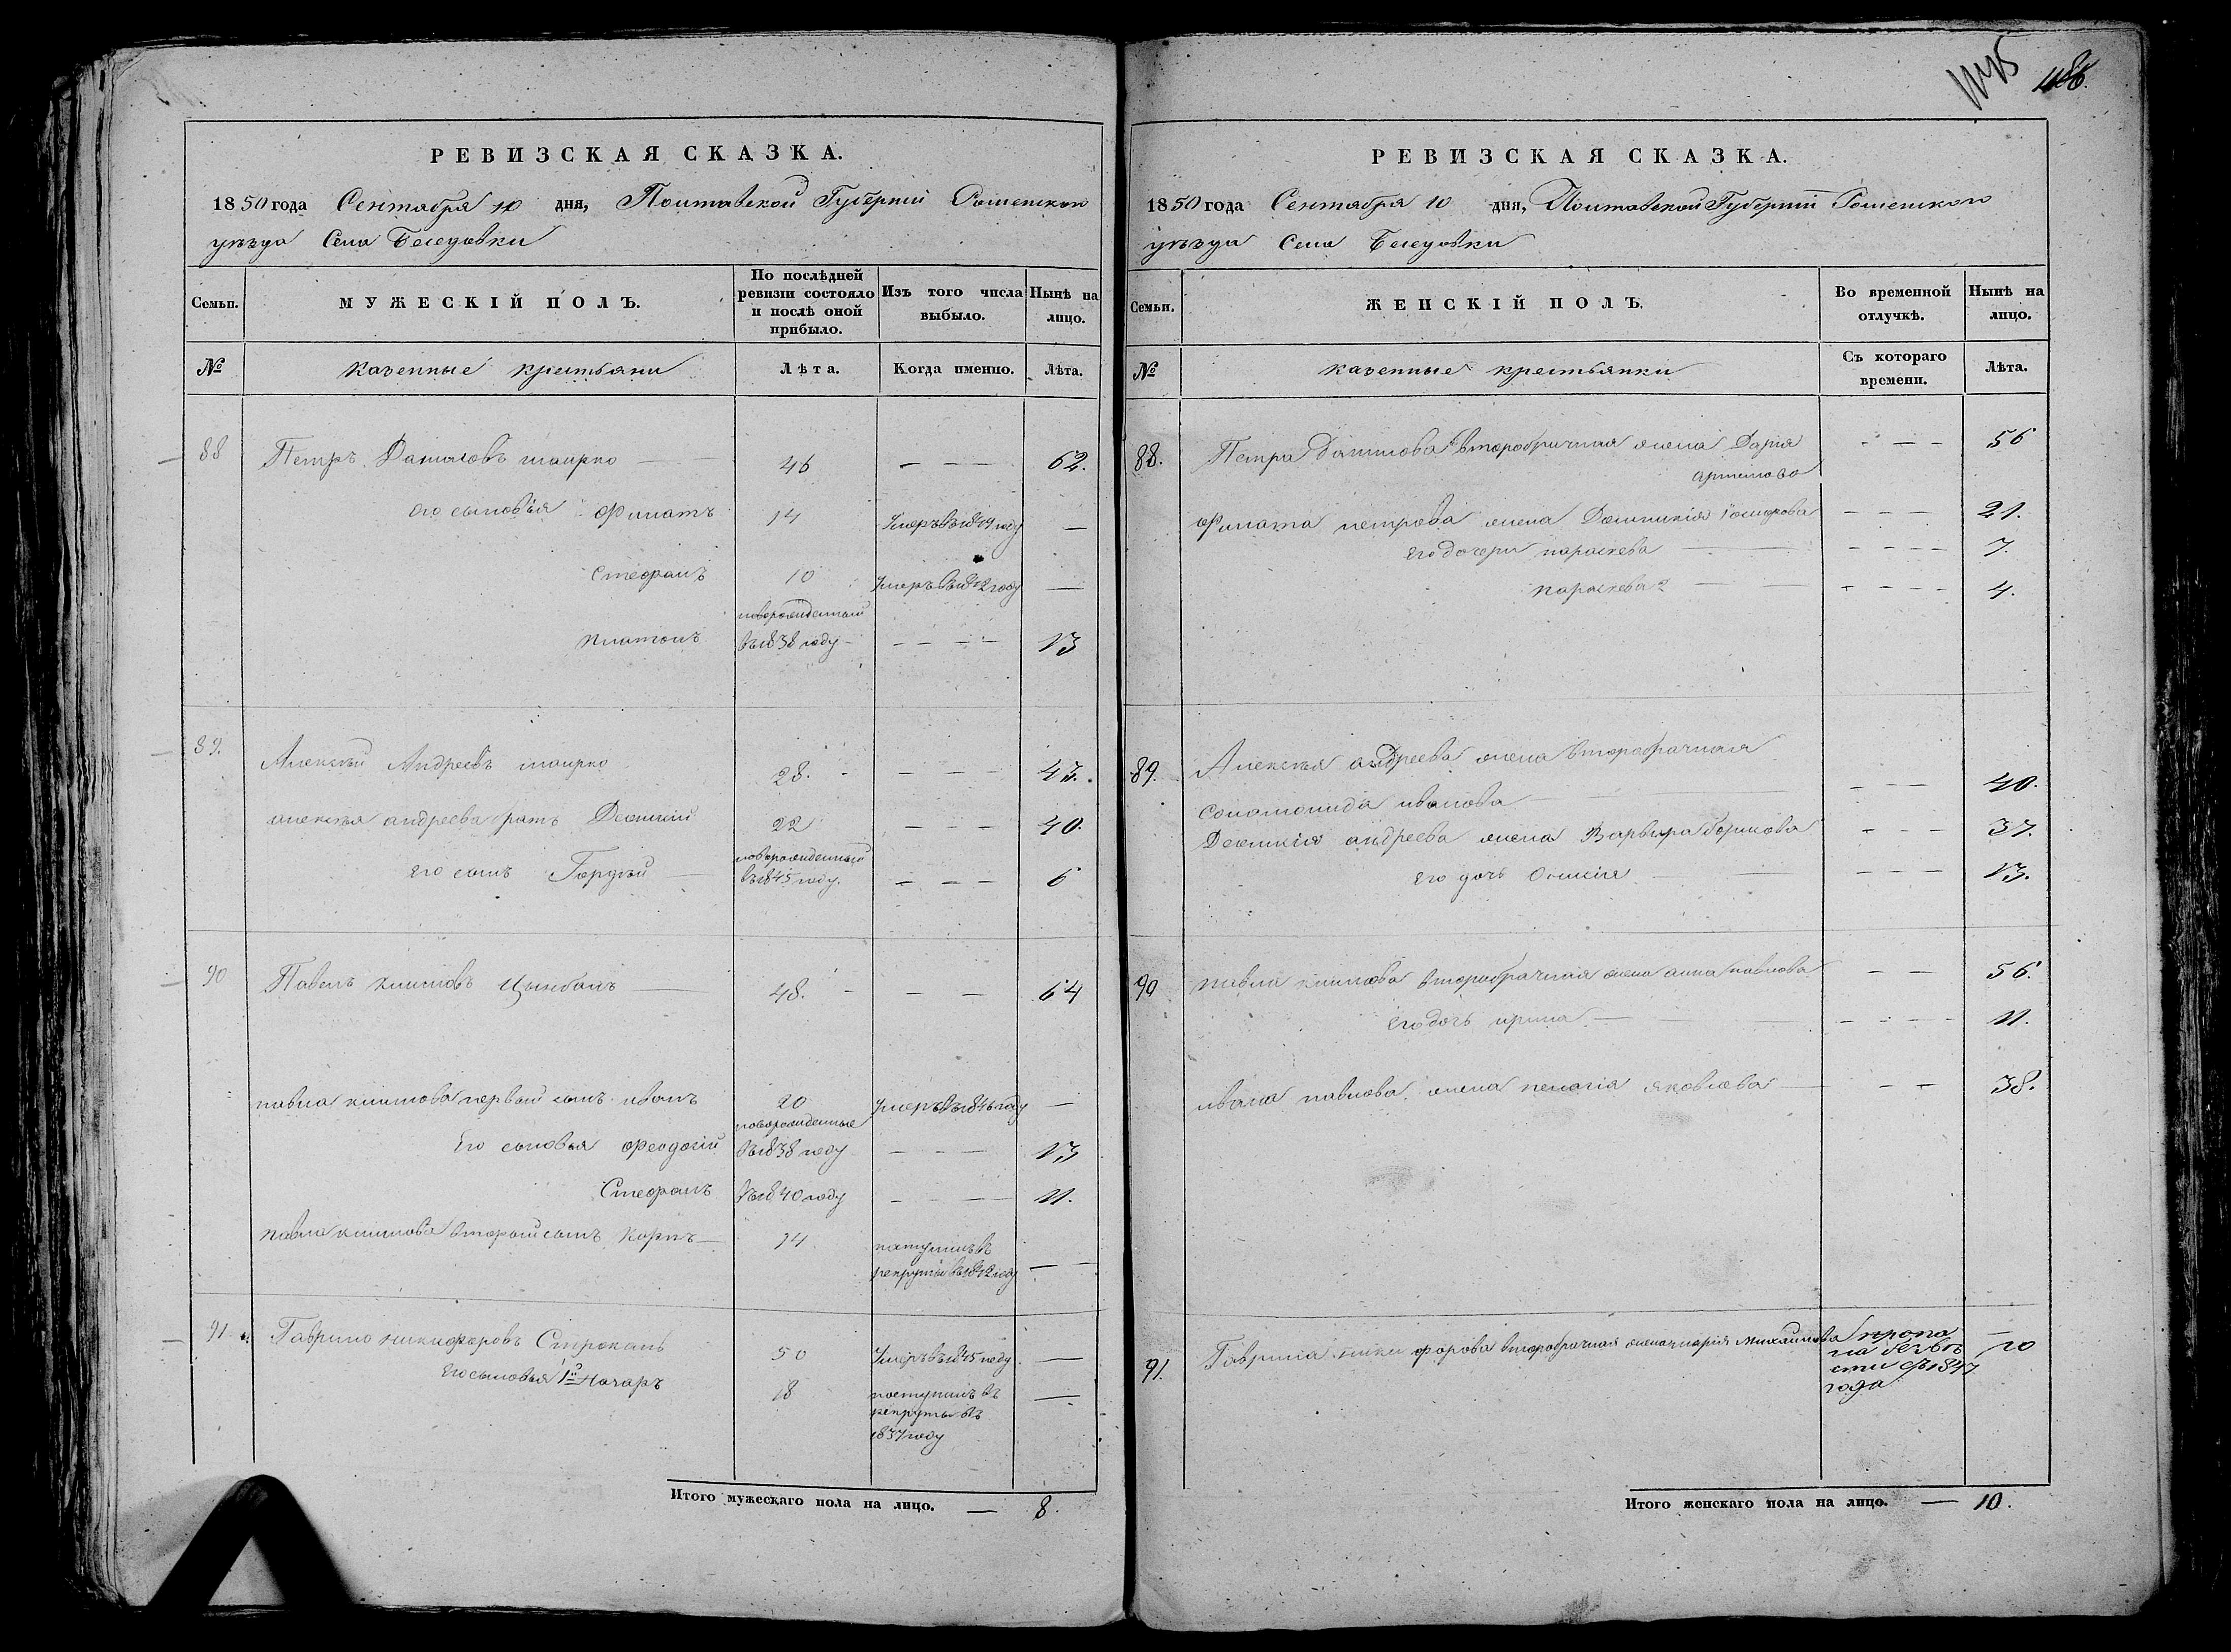 РЕВИЗСКАЯ СКАЗКА.
1850 года Сентября 10 дня, Полтавской Губернии Роменского
уѣзда Села Беседовки
Семьи. МУЖЕСКІЙ ПОЛЪ. По послѣдней ревизіи состояло и послѣ оной прибыло. Изъ того числа выбыло. Нынѣ на лицо.
№ казенные крестьяни Лѣта. Когда именно. Лѣта.
88 Петръ Даниловъ 46 — — 62.
его сыновья Филатъ 14 Умеръ въ 1849 году —
Стефанъ 10 Умеръ въ 1842 году —
новорожденный
Платонъ въ 1838 году — — — — 13
89. Алексѣй Андреевъ 28. — — — 47.
алексѣя андреева братъ 22 — — — 40.
новорожденный
его сынъ Гордѣй — въ 1845 году. — — — 6
90 Павелъ климовъ Цымбалъ — 48. — — — 64
павла климова первый сынъ иванъ 20 Умеръ въ 1846 году —
новорожденные
Его сыновья Феодосій въ 1838 году — — — 13
Стефанъ въ 1840 году — — — 11.
павла климова вторый сынъ Карпъ — 14 поступилъ въ
рекруты въ 1842 году — —
91. Гаврило никифоровъ 50 Умеръ въ 1845 году. —
Его сыновья 1й Назаръ 18 поступилъ въ —
рекруты въ
1837 году
Итого мужескаго пола на лицо. — 8.
486.
РЕВИЗСКАЯ СКАЗКА.
1850 года Сентября 10 дня, Полтавской Губерніи Роменского
уѣзда Села Беседовки
Семьи. ЖЕНСКІЙ ПОЛЪ. Во временной отлучкѣ. Нынѣ на лицо.
№ казенные крестьянки Съ котораго времени. Лѣта.
88. Петра Данилова второбрачная жена Дарія — — — 56
артемова
Филата петрова жена — — — 21.
Его дочери параскева — — — — 7.
параскева 2 — — — — 4.
89. Алексѣя андреева жена второбрачная
Соломонида иванова — — — — 40.
андреева жена Варвара — — — 37.
Его дочь — — — — 13.
90 павла климова второбрачная жена анна павлова — — 56.
Его дочь ирина — — — — — 11.
ивана павлова жена пелагія яковлева — — — 38.
91. Гаврила никифорова второбрачная жена марія михайлова пропа —
ла безвѣ 70
сти съ 1847
года
Итого женскаго пола на лицо. — 10.